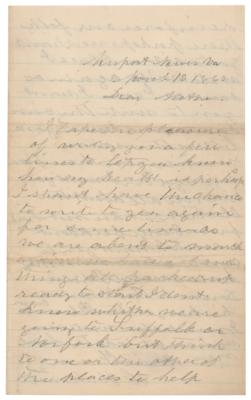 Newport News Va
March 13 1863
Dear Sister
I take the pleasure
of writing you a few
lines to let you know
how my health is perhaps
I shant have the chance
to write to you again
for some time as
we are about to march
things all packed and
ready to start I dont
know whether we are
going to Suffolk or
Norfolk but think
to one or the other of
the places to help